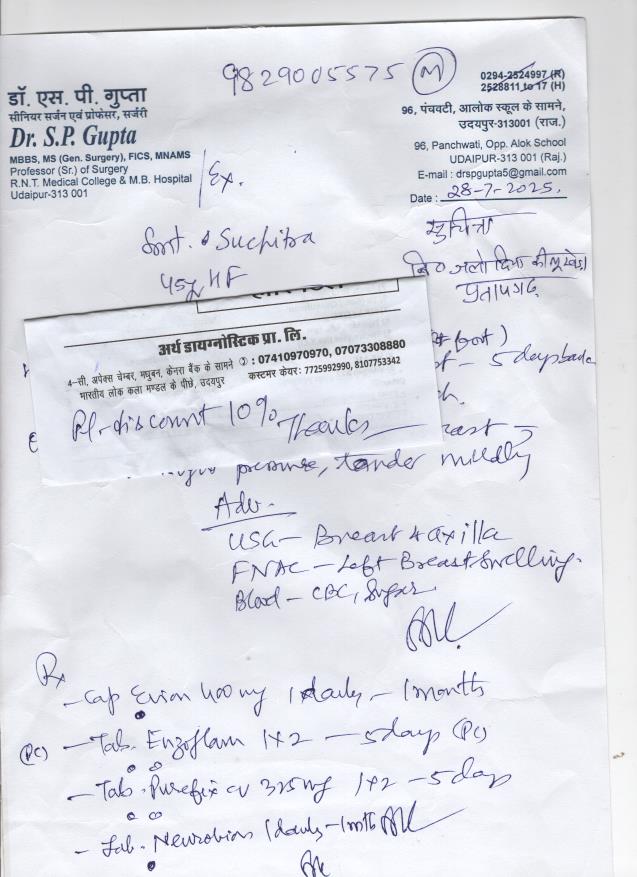 9829005575 (M)
डॉ. एस. पी. गुप्ता
सीनियर सर्जन एवं प्रोफेसर, सर्जरी
Dr. S.P. Gupta
MBBS, MS (Gen. Surgery), FICS, MNAMS
Professor (Sr.) of Surgery
R.N.T. Medical College & M.B. Hospital
Udaipur-313 001
Ex.
0294-2524997 (R)
2528811 to 17 (H)
96, पंचवटी, आलोक स्कूल के सामने,
उदयपुर-313001 (राज.)
96, Panchwati, Opp. Alok School
UDAIPUR-313 001 (Raj.)
E-mail : drspgupta5@gmail.com
Date : 28-7-2025.
Smt. Suchitra
45y HF
सुचित्रा
प्रतापगढ़
अर्थ डायग्नोस्टिक प्रा. लि.
4-सी, अपेक्स चेम्बर, मधुबन, केनरा बैंक के सामने : 07410970970, 07073308880
भारतीय लोक कला मण्डल के पीछे, उदयपुर कस्टमर केयर: 7725992990, 8107753342
Pl-discount 10% Thanks
- 5 days back
tender mildly
Adv.
USG - Breast & axilla
FNAC - Left Breast Swelling.
Blood - CBC, Sugar
Rx
- Cap Evion 400 mg 1 daily - 1 month
(PC) - Tab. Enzoflam 1x2 - 5 days (PC)
- Tab. Purefix CV 325 mg 1x2 - 5 days
- Tab. Neurobion 1 daily - 1 mth